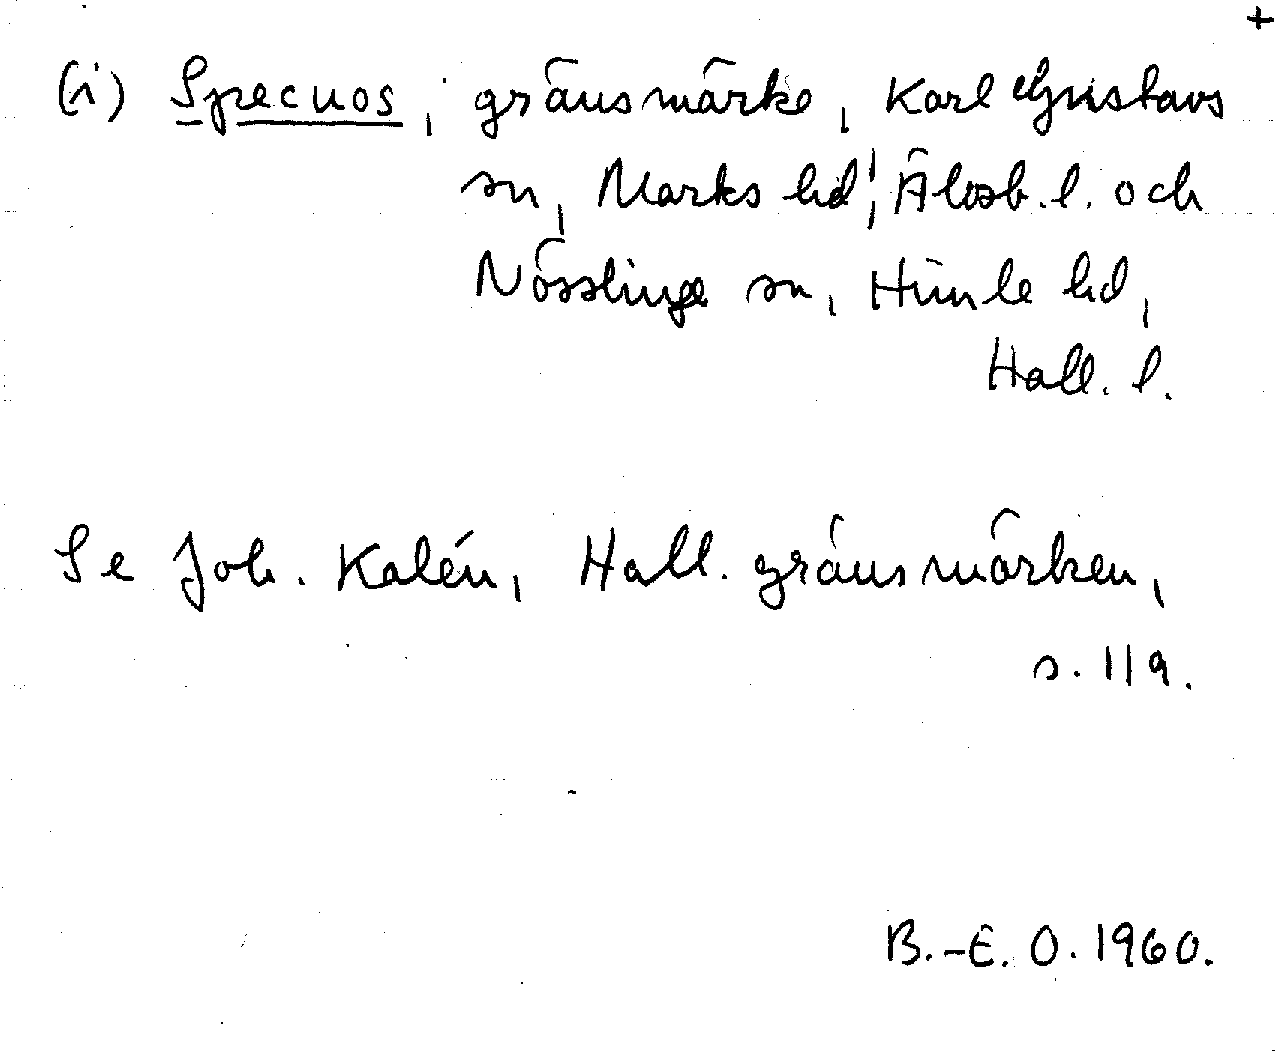 +
(i) Specuos, gränsmärke, Karl Gustavs
sn, Marks hd, Älvsb. l. och
Nösslinge sn, Himle hd,
Hall. l.
Se Joh. Kalén, Hall. gränsmärken,
s. 119.
B.-E. O. 1960.